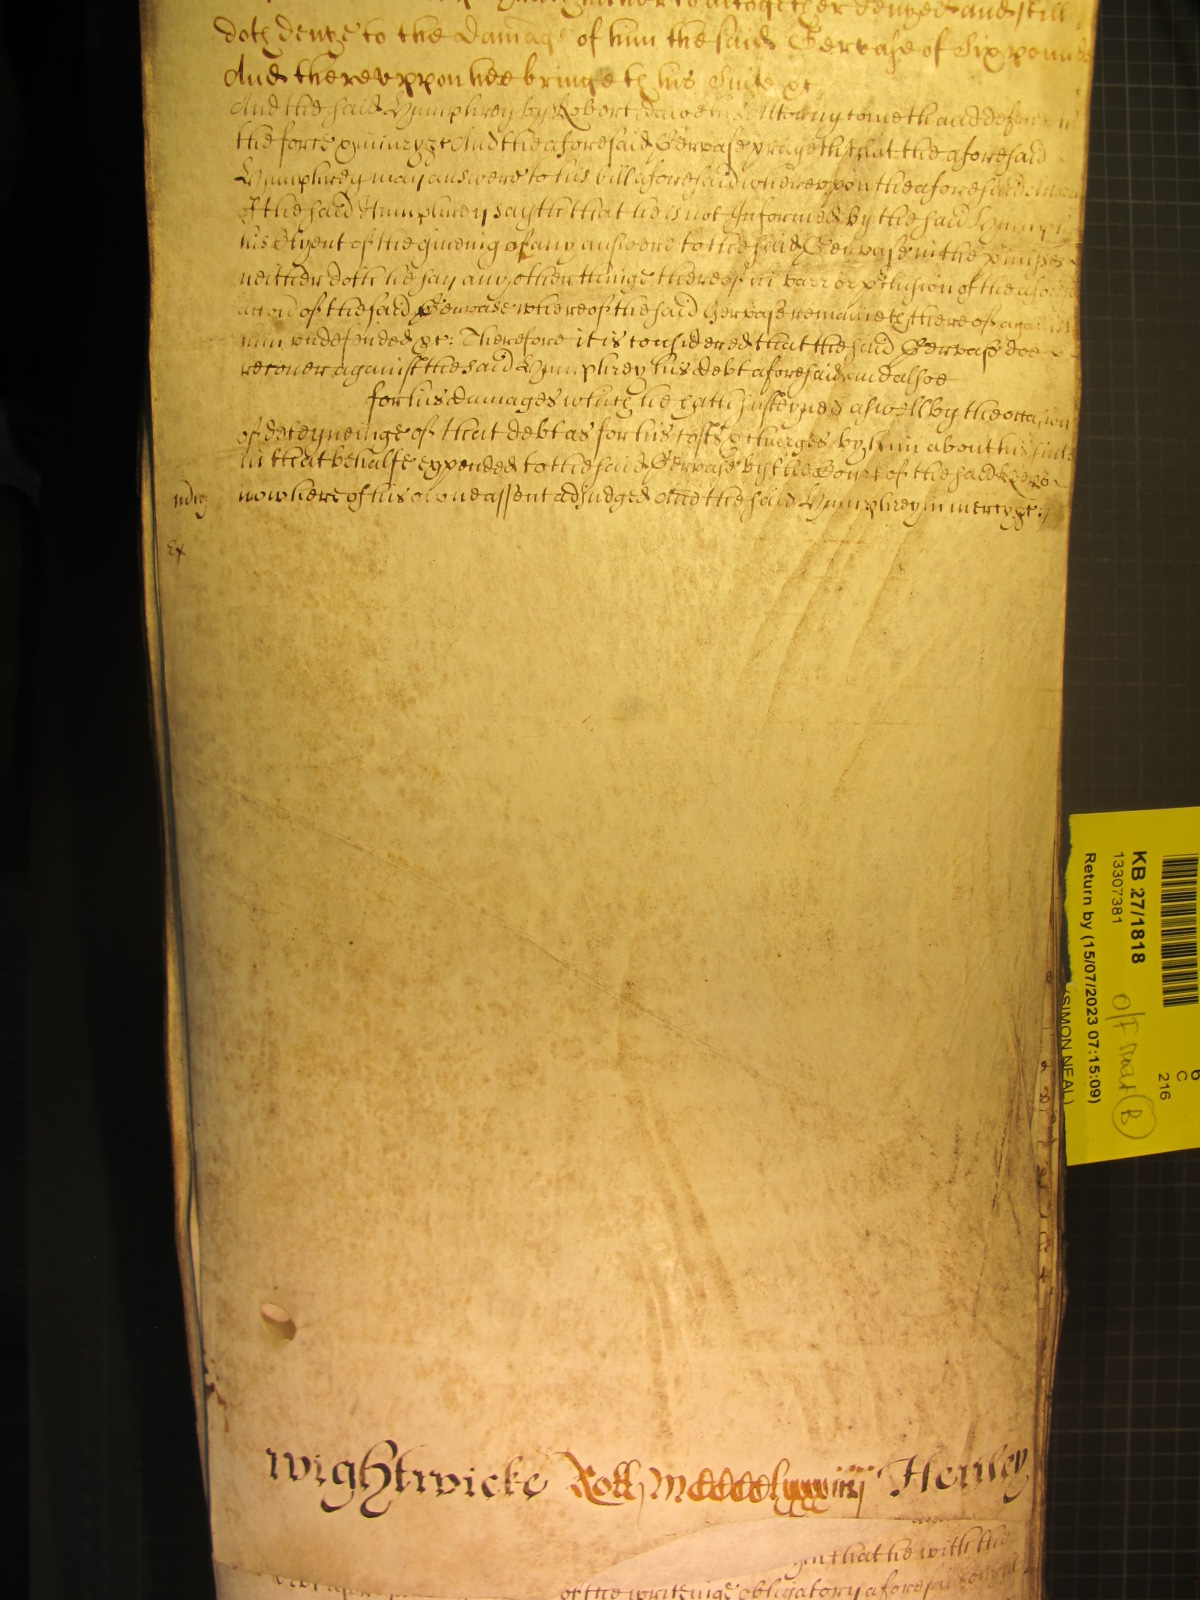 altogether denyed and still
doth denye to the Damage of him the said Gervase of Six pounds
And therevppon hee bringeth his Suite &c
And the said Humphrey by Robert his Attorny cometh and defen
the force & iniury &c And the aforesaid Gervase prayeth that the aforesaid
Humphrey may answere to his bill aforesaid wherevpon the aforesaid
of the said Humphrey sayth that he is not Informed by the said Humph
his Clyent of the giveing of any answere to the said Gervase in the p'misses
neither doth he say any other thinge thereof in barr or p'clusion of the afore
accion of the said Gervase whereof the said Gervase remaineth thereof against
him vndefended &c: Therefore it is considered that the said Gervase doe
recover against the said Humphrey his debt aforesaid and alsoe
for his damages which he hath susteyned aswell by the occasion
of deteyneinge of that debt as for his costs & charges by him about his suite
in that behalfe expended to the said Gervase by the Court of the said Keepers
now here of his owne assent adjudged And the said Humphrey in mercy &c:
Ex
Wightwicke Roll MCCCClxxxiiij Henley
that he with the
of the writeinge obligatory aforesaid
KB 27/1818
13307381
Return by (15/07/2023 07:15:09)
(SIMON NEAL)
6
C
216
O/F Near B